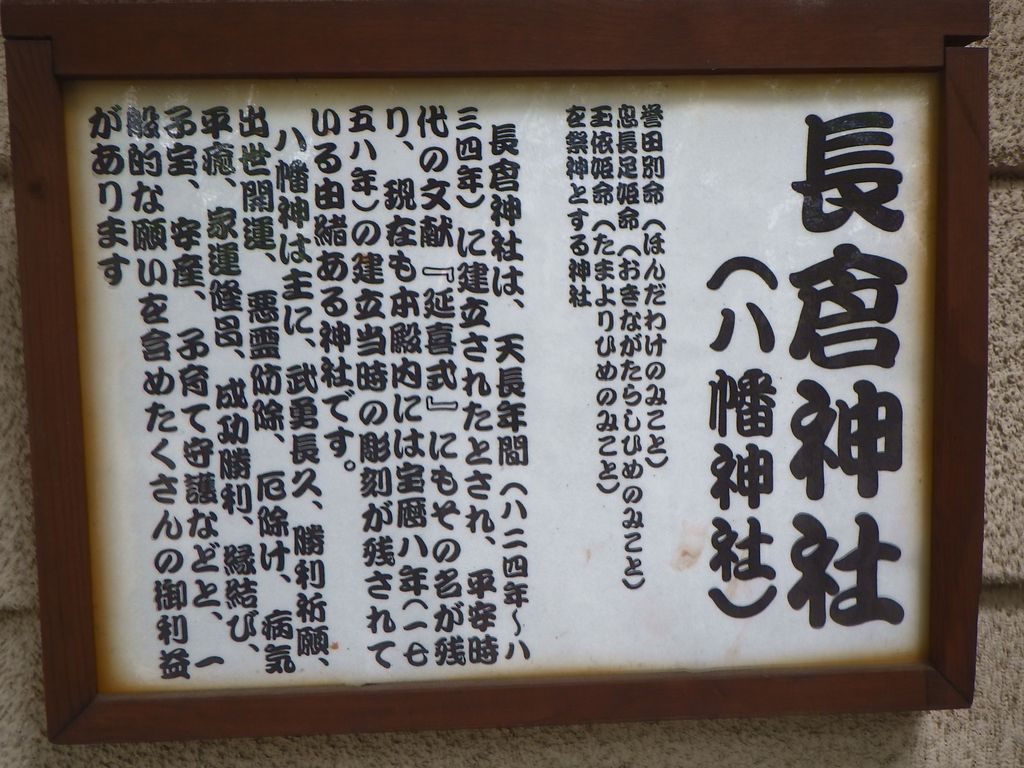 長倉神社
（八幡神社）
誉田別命（ほんだわけのみこと）
息長足姫命（おきながたらしひめのみこと）
玉依姫命（たまよりひめのみこと）
を祭神とする神社
長倉神社は、天長年間（八二四年～八
三四年）に建立されたとされ、平安時
代の文献『延喜式』にもその名が残
り、現在も本殿内には宝暦八年（一七
五八年）の建立当時の彫刻が残されて
いる由緒ある神社です。
八幡神は主に、武勇長久、勝利祈願、
出世開運、悪霊防除、厄除け、病気
平癒、家運隆昌、成功勝利、縁結び、
子宝、安産、子育て守護などと、一
般的な願いを含めたくさんの御利益
があります